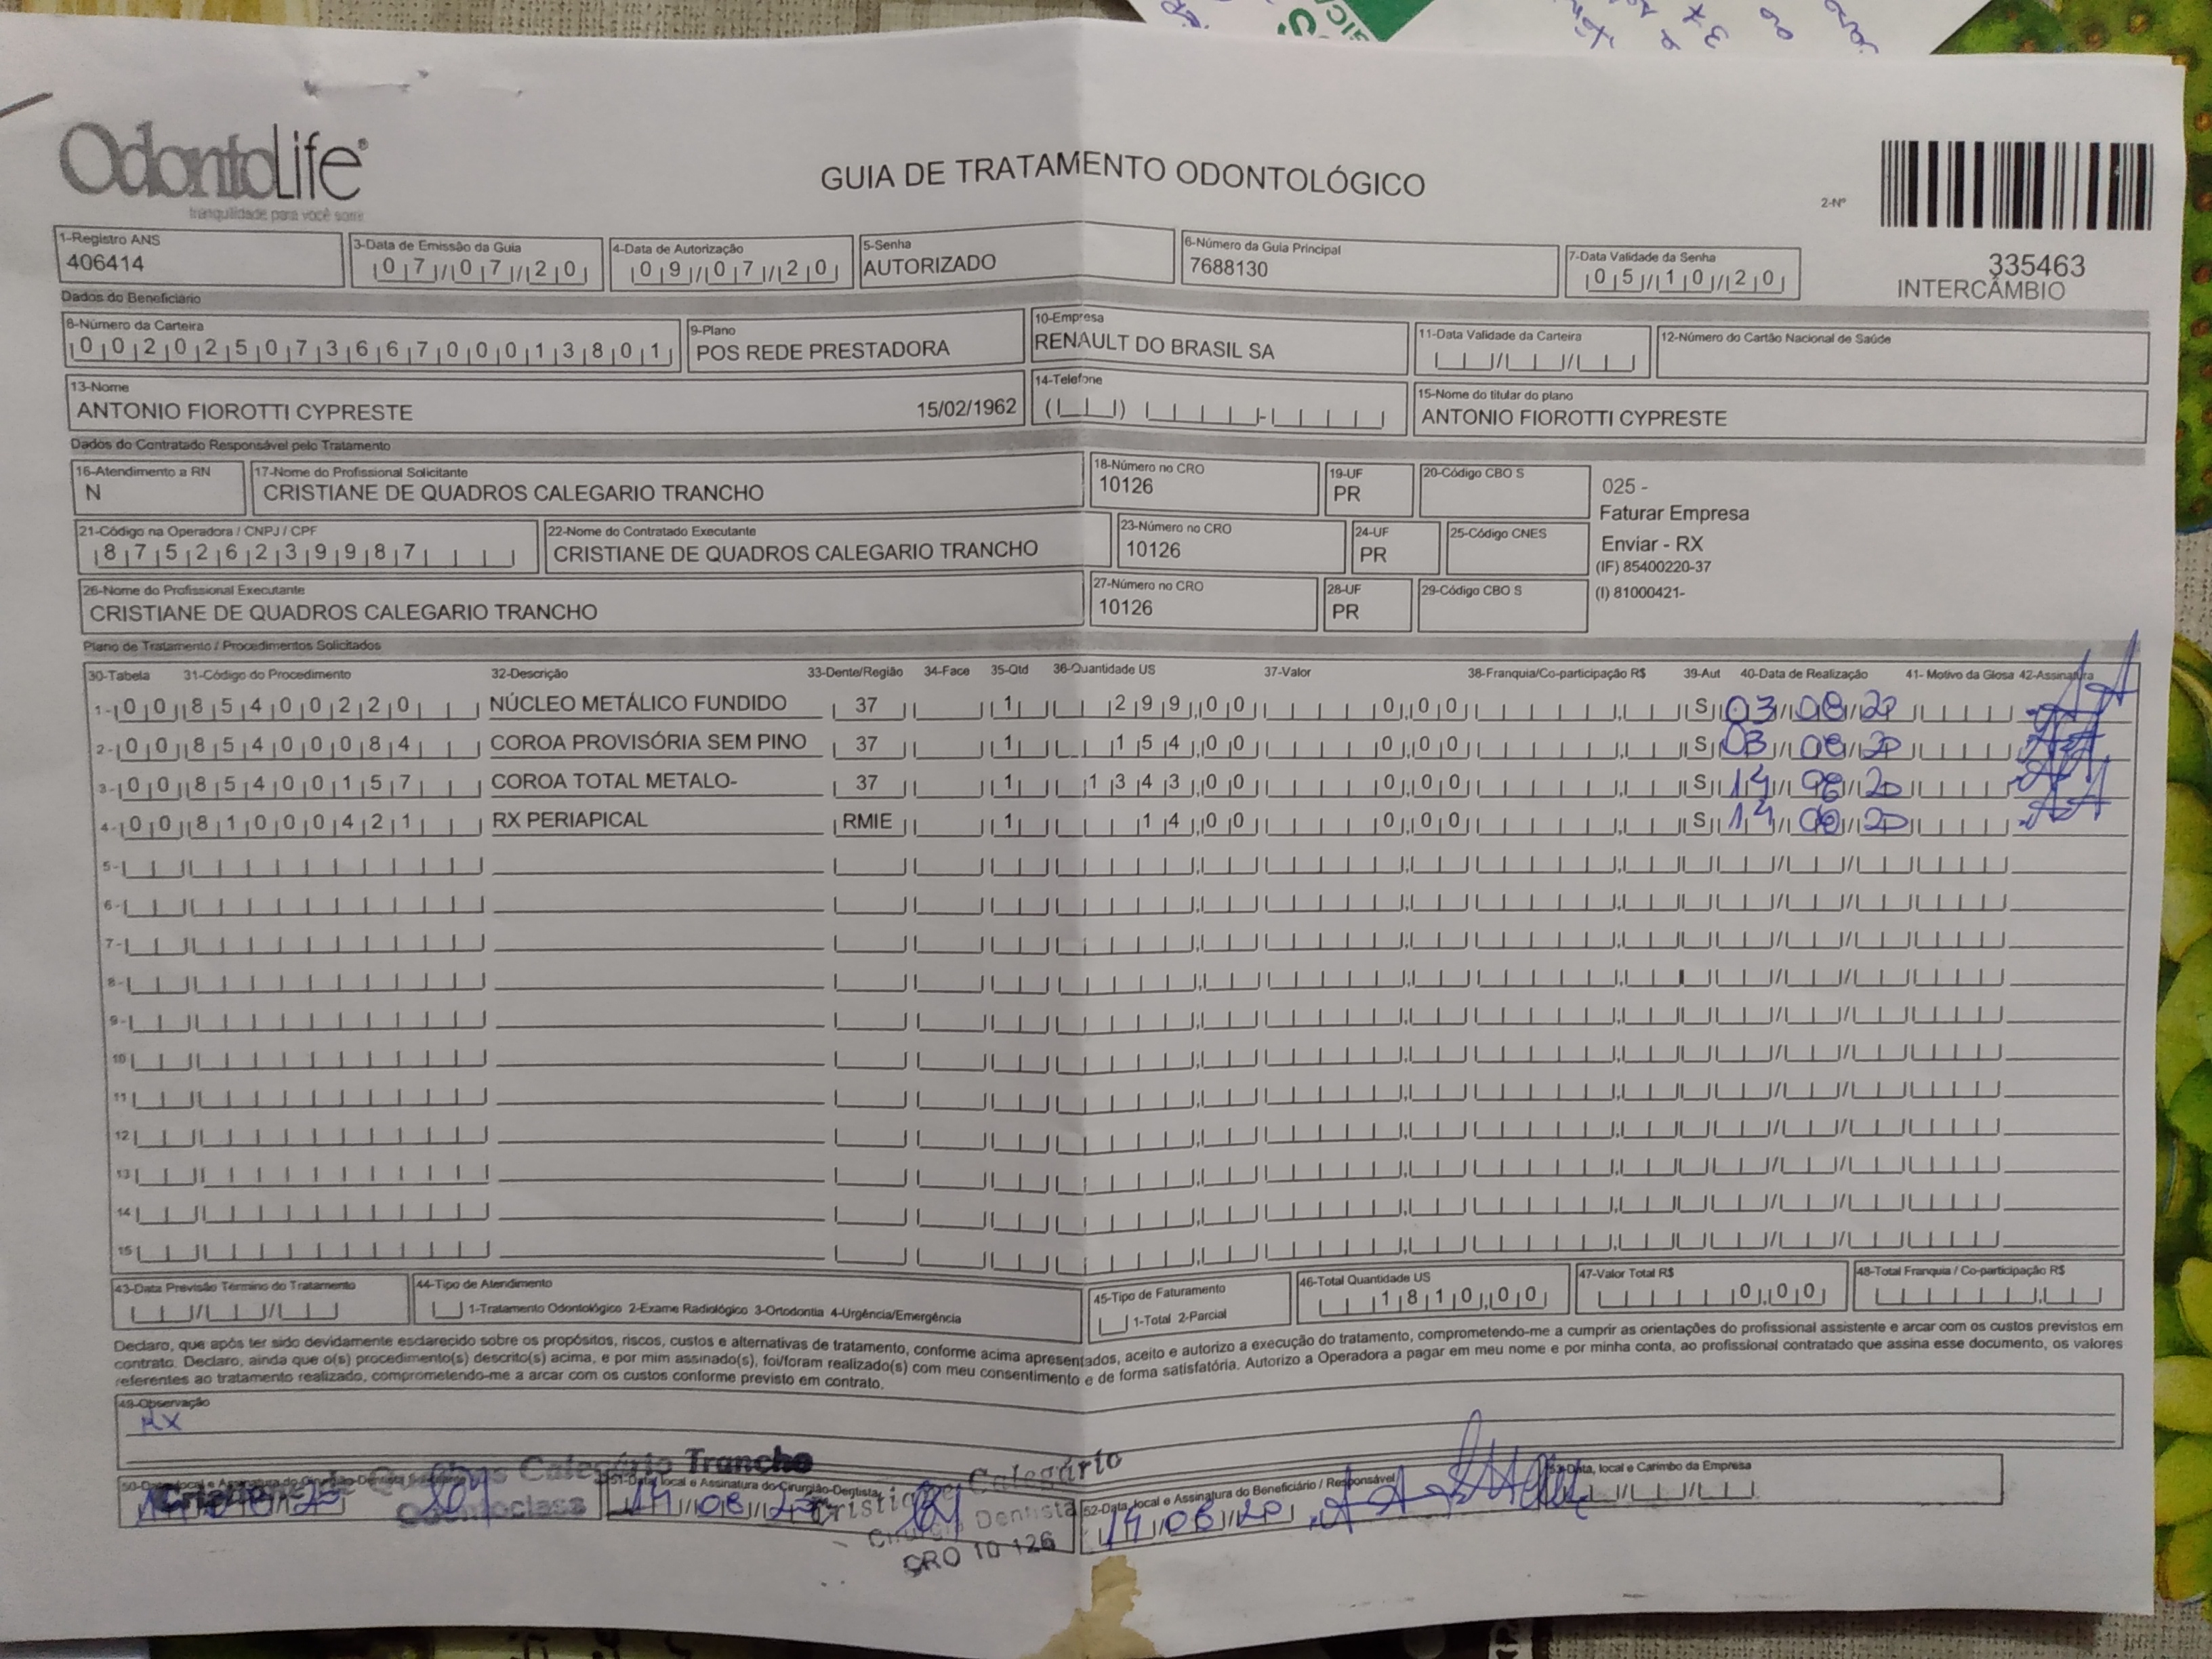 OdontoLife
tranquilidade para você sorrir
GUIA DE TRATAMENTO ODONTOLÓGICO
2-Nº
335463
INTERCÂMBIO
1-Registro ANS
406414
3-Data de Emissão da Guia
07/07/20
4-Data de Autorização
09/07/20
5-Senha
AUTORIZADO
6-Número da Guia Principal
7688130
7-Data Validade da Senha
05/10/20
Dados do Beneficiário
8-Número da Carteira
00202507366700013801
9-Plano
POS REDE PRESTADORA
10-Empresa
RENAULT DO BRASIL SA
11-Data Validade da Carteira
12-Número do Cartão Nacional de Saúde
13-Nome
ANTONIO FIOROTTI CYPRESTE 15/02/1962
14-Telefone
15-Nome do titular do plano
ANTONIO FIOROTTI CYPRESTE
Dados do Contratado Responsável pelo Tratamento
16-Atendimento a RN
N
17-Nome do Profissional Solicitante
CRISTIANE DE QUADROS CALEGARIO TRANCHO
18-Número no CRO
10126
19-UF
PR
20-Código CBO S
025 -
Faturar Empresa
Enviar - RX
(IF) 85400220-37
(I) 81000421-
21-Código na Operadora / CNPJ / CPF
87526239987
22-Nome do Contratado Executante
CRISTIANE DE QUADROS CALEGARIO TRANCHO
23-Número no CRO
10126
24-UF
PR
25-Código CNES
26-Nome do Profissional Executante
CRISTIANE DE QUADROS CALEGARIO TRANCHO
27-Número no CRO
10126
28-UF
PR
29-Código CBO S
Plano de Tratamento / Procedimentos Solicitados
30-Tabela 31-Código do Procedimento 32-Descrição 33-Dente/Região 34-Face 35-Qtd 36-Quantidade US 37-Valor 38-Franquia/Co-participação R$ 39-Aut 40-Data de Realização 41- Motivo da Glosa 42-Assinatura
1- 00 85400220 NÚCLEO METÁLICO FUNDIDO 37 1 299,00 0,00 S 03/08/20
2- 00 85400084 COROA PROVISÓRIA SEM PINO 37 1 154,00 0,00 S 03/08/20
3- 00 85400157 COROA TOTAL METALO- 37 1 1343,00 0,00 S 14/08/20
4- 00 81000421 RX PERIAPICAL RMIE 1 14,00 0,00 S 14/08/20
5-
6-
7-
8-
9-
10
11
12
13
14
15
43-Data Previsão Término do Tratamento
44-Tipo de Atendimento
1-Tratamento Odontológico 2-Exame Radiológico 3-Ortodontia 4-Urgência/Emergência
45-Tipo de Faturamento
1-Total 2-Parcial
46-Total Quantidade US
1810,00
47-Valor Total R$
0,00
48-Total Franquia / Co-participação R$
Declaro, que após ter sido devidamente esclarecido sobre os propósitos, riscos, custos e alternativas de tratamento, conforme acima apresentados, aceito e autorizo a execução do tratamento, comprometendo-me a cumprir as orientações do profissional assistente e arcar com os custos previstos em
contrato. Declaro, ainda que o(s) procedimento(s) descrito(s) acima, e por mim assinado(s), foi/foram realizado(s) com meu consentimento e de forma satisfatória. Autorizo a Operadora a pagar em meu nome e por minha conta, ao profissional contratado que assina esse documento, os valores
referentes ao tratamento realizado, comprometendo-me a arcar com os custos conforme previsto em contrato.
49-Observação
RX
50-Data, local e Assinatura do Cirurgião-Dentista Solicitante
Calegário Trancho
Odontoclass
51-Data, local e Assinatura do Cirurgião-Dentista
14/08/20
Cristiane Calegário
Cirurgiã Dentista
CRO 10 126
52-Data, local e Assinatura do Beneficiário / Responsável
14/08/20
53-Data, local e Carimbo da Empresa